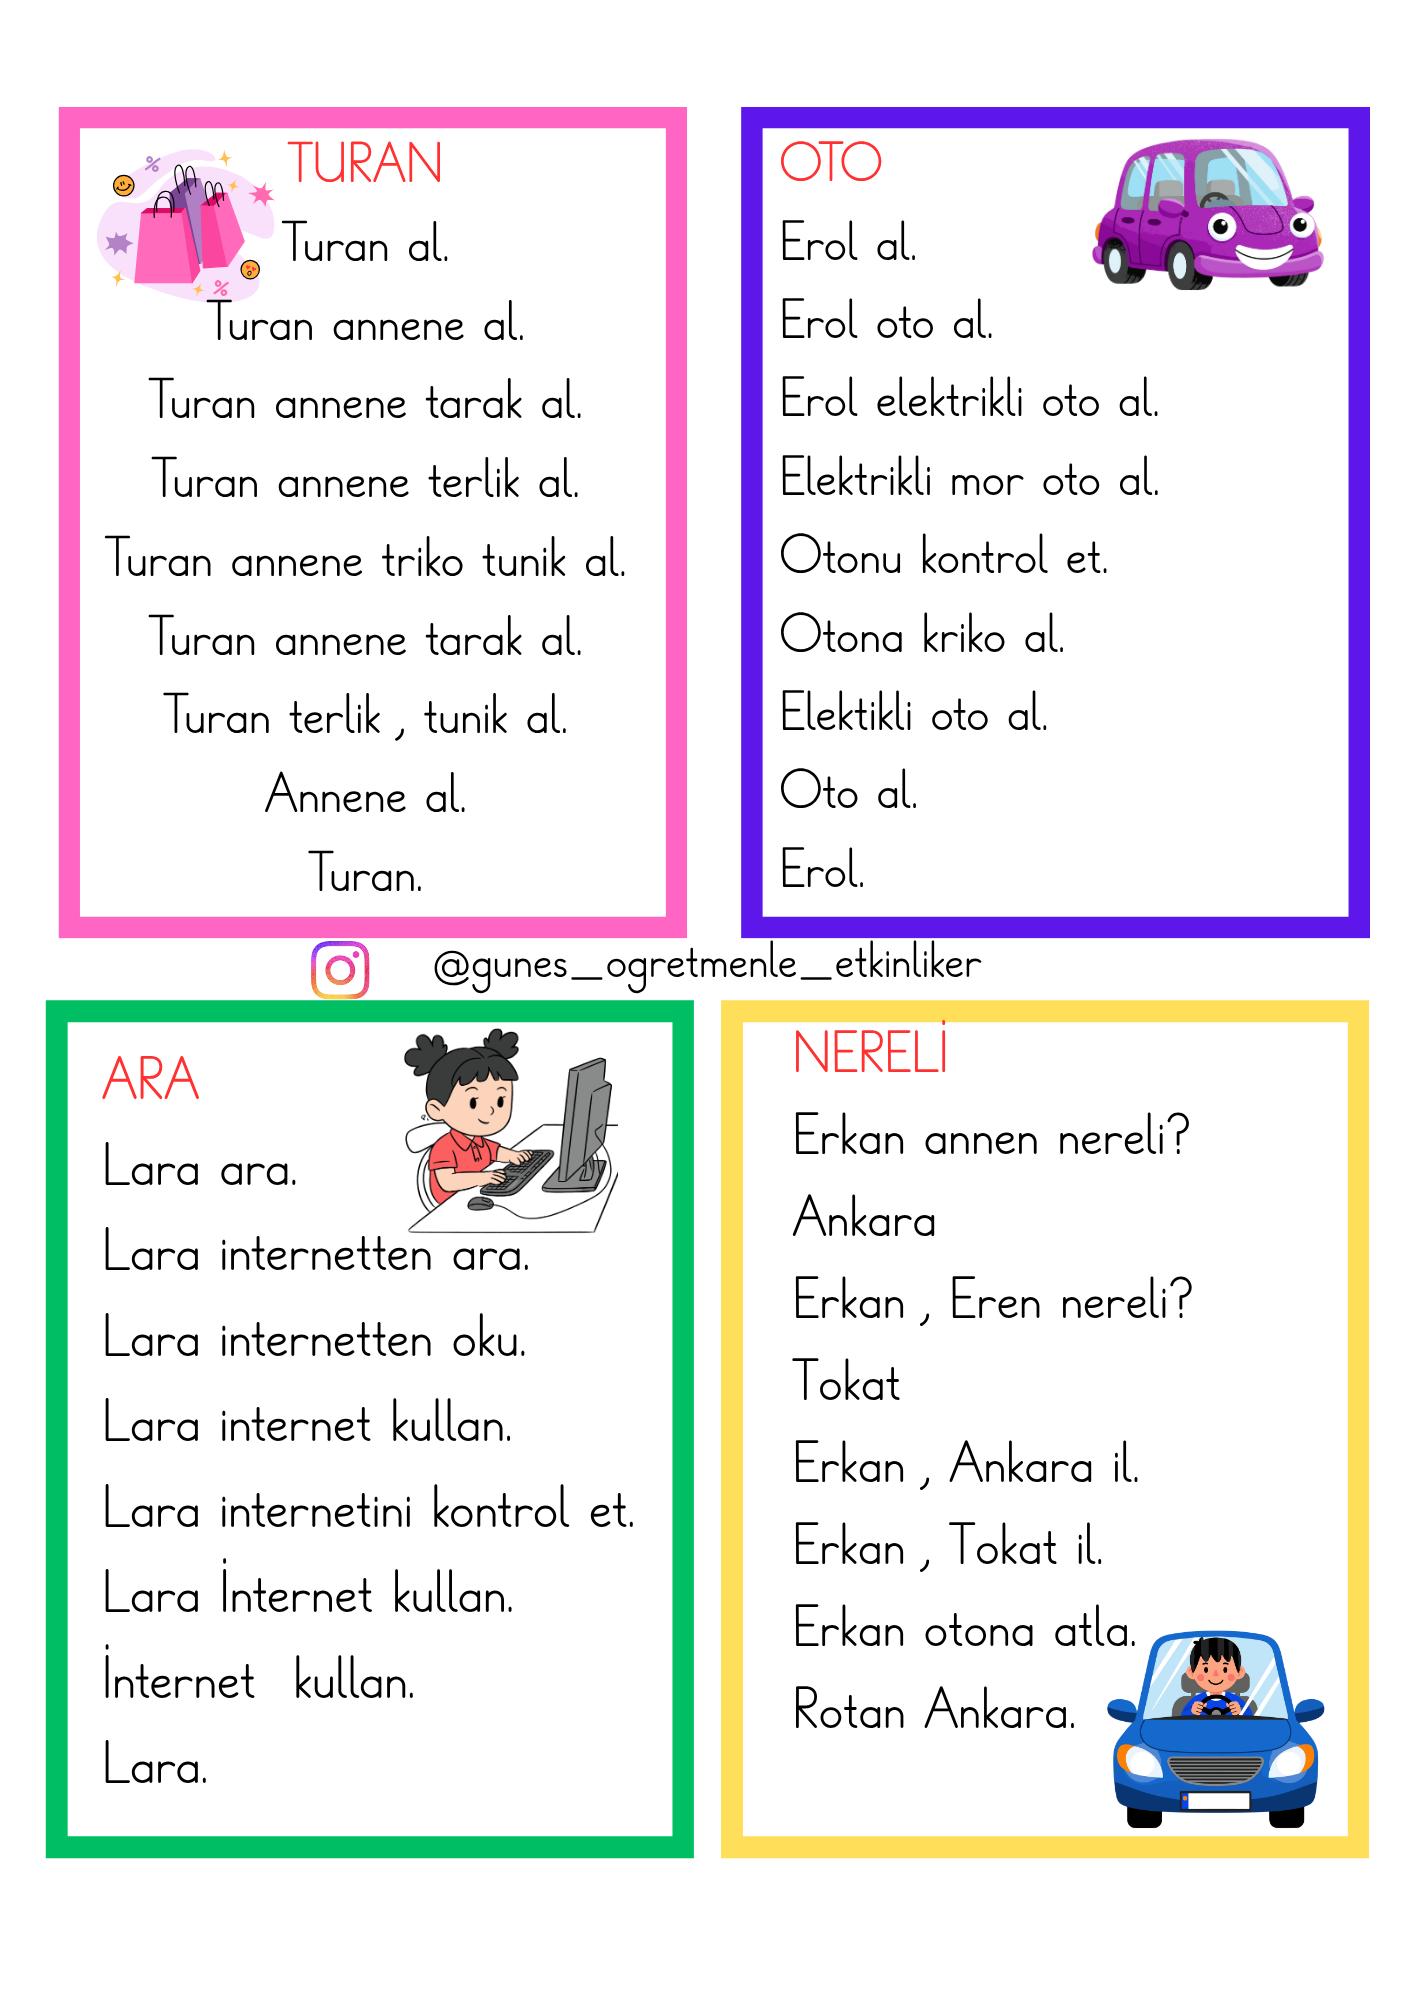 TURAN
Turan al.
Turan annene al.
Turan annene tarak al.
Turan annene terlik al.
Turan annene triko tunik al.
Turan annene tarak al.
Turan terlik , tunik al.
Annene al.
Turan.
OTO
Erol al.
Erol oto al.
Erol elektrikli oto al.
Elektrikli mor oto al.
Otonu kontrol et.
Otona kriko al.
Elektikli oto al.
Oto al.
Erol.
@gunes_ogretmenle_etkinliker
ARA
Lara ara.
Lara internetten ara.
Lara internetten oku.
Lara internet kullan.
Lara internetini kontrol et.
Lara İnternet kullan.
İnternet kullan.
Lara.
NERELİ
Erkan annen nereli?
Ankara
Erkan , Eren nereli?
Tokat
Erkan , Ankara il.
Erkan , Tokat il.
Erkan otona atla.
Rotan Ankara.